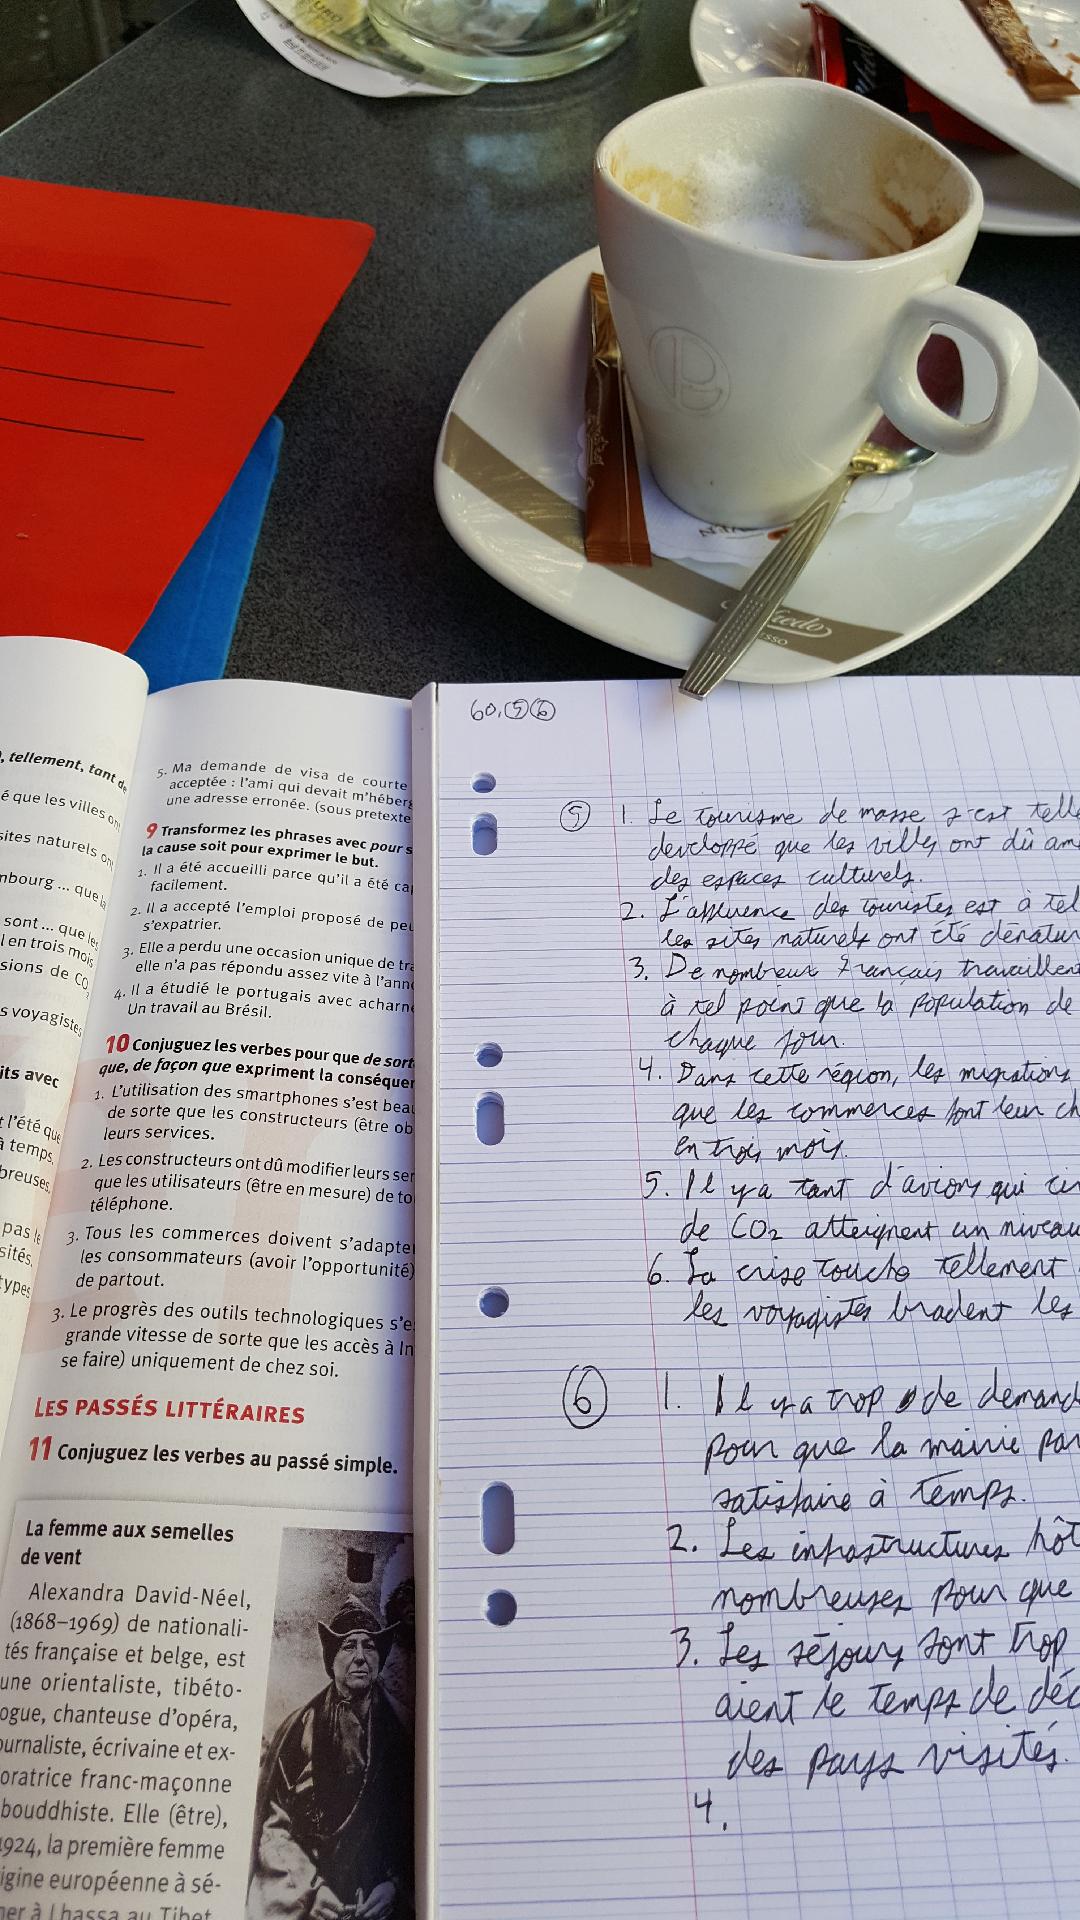 fredo
SSO
, tellement, tant de
é que les villes ont
sites naturels ont
mbourg ... que la
sont ... que les
l en trois mois
sions de CO2
s voyagistes
its avec
t l'été que
à temps.
breuses,
pas le
sités.
types
5. Ma demande de visa de courte
acceptée : l'ami qui devait m'héberg
une adresse erronée. (sous pretexte
9 Transformez les phrases avec pour s
la cause soit pour exprimer le but.
1. Il a été accueilli parce qu'il a été ca
facilement.
2. Il a accepté l'emploi proposé de peu
s'expatrier.
3. Elle a perdu une occasion unique de tra
elle n'a pas répondu assez vite à l'ann
4. Il a étudié le portugais avec acharne
Un travail au Brésil.
10 Conjuguez les verbes pour que de sort
que, de façon que expriment la conséquen
1. L'utilisation des smartphones s'est beau
de sorte que les constructeurs (être ob
leurs services.
2. Les constructeurs ont dû modifier leurs ser
que les utilisateurs (être en mesure) de to
téléphone.
3. Tous les commerces doivent s'adapte
les consommateurs (avoir l'opportunité)
de partout.
3. Le progrès des outils technologiques s'e
grande vitesse de sorte que les accès à In
se faire) uniquement de chez soi.
LES PASSÉS LITTÉRAIRES
11 Conjuguez les verbes au passé simple.
La femme aux semelles
de vent
Alexandra David-Néel,
(1868–1969) de nationali-
tés française et belge, est
une orientaliste, tibéto-
ogue, chanteuse d'opéra,
ournaliste, écrivaine et ex-
oratrice franc-maçonne
bouddhiste. Elle (être),
1924, la première femme
igine européenne à sé-
ner à Lhassa au Tibet
60, 5 6
5 1. Le tourisme de masse s'est telle
developpé que les villes ont dû amé
des espaces culturels.
2. L'affluence des touristes est à tel
les sites naturels ont été dénatur
3. De nombreux Français travaillent
à tel point que la population de
chaque jour.
4. Dans cette région, les migrations
que les commerces font leur ch
en trois mois.
5. Il y a tant d'avions qui cir
de CO2 atteignent un niveau
6. La crise touche tellement
les voyagistes bradent les
6 1. Il y a trop de demand
pour que la mairie par
satisfaire à temps.
2. Les infrastructures hôt
nombreuses pour que
3. Les séjours sont trop
aient le temps de déc
des pays visités.
4.